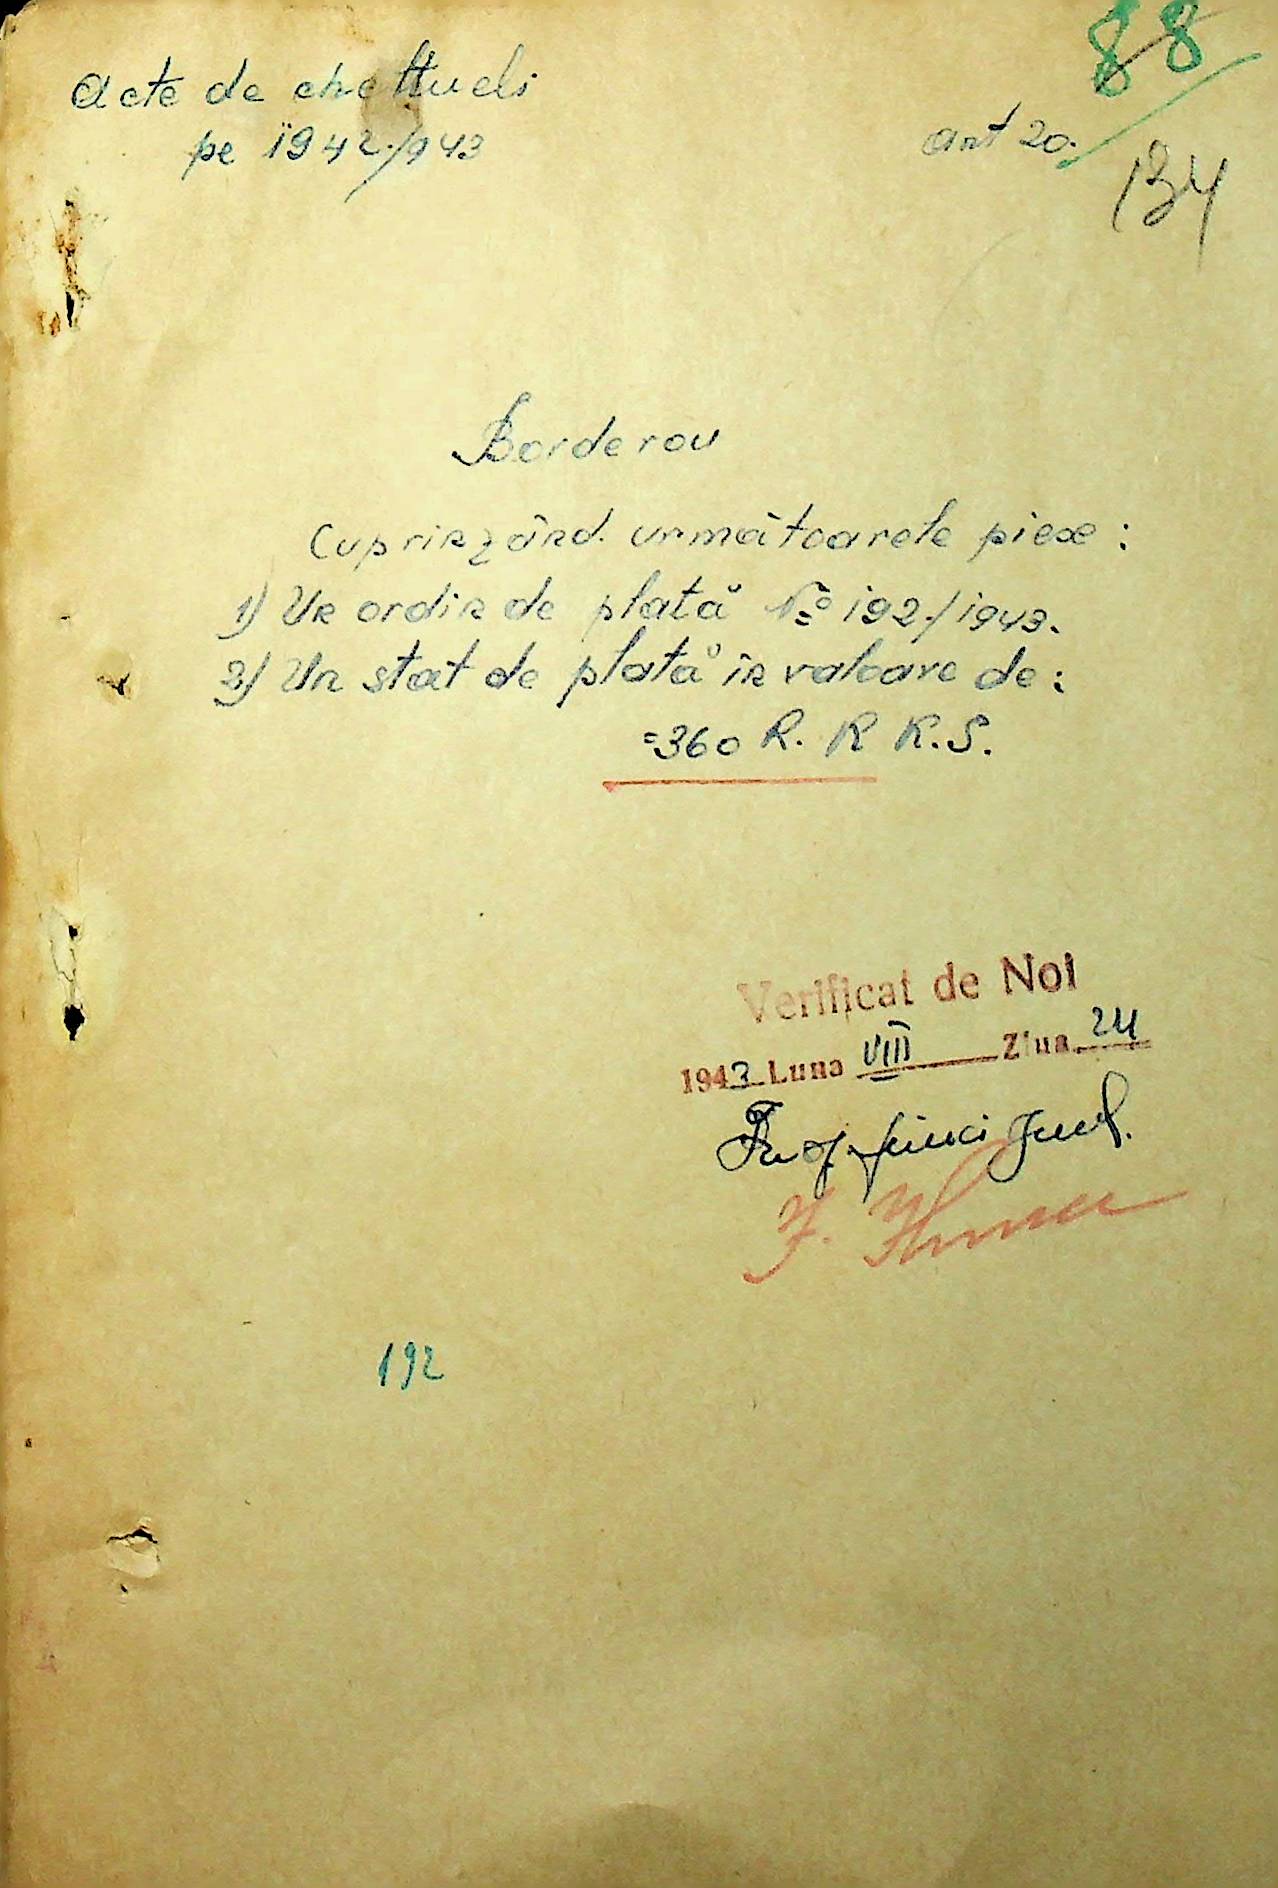 88
Acte de cheltueli
pe 1942./943
art 20.
134
Borderou
Cuprinzând. următoarele piese :
1) Un ordin de plată No 192./1943.
2) Un stat de plată în valoare de :
=360 R. K K. S.
Verificat de Noi
1943 Luna VIII Ziua 24
192